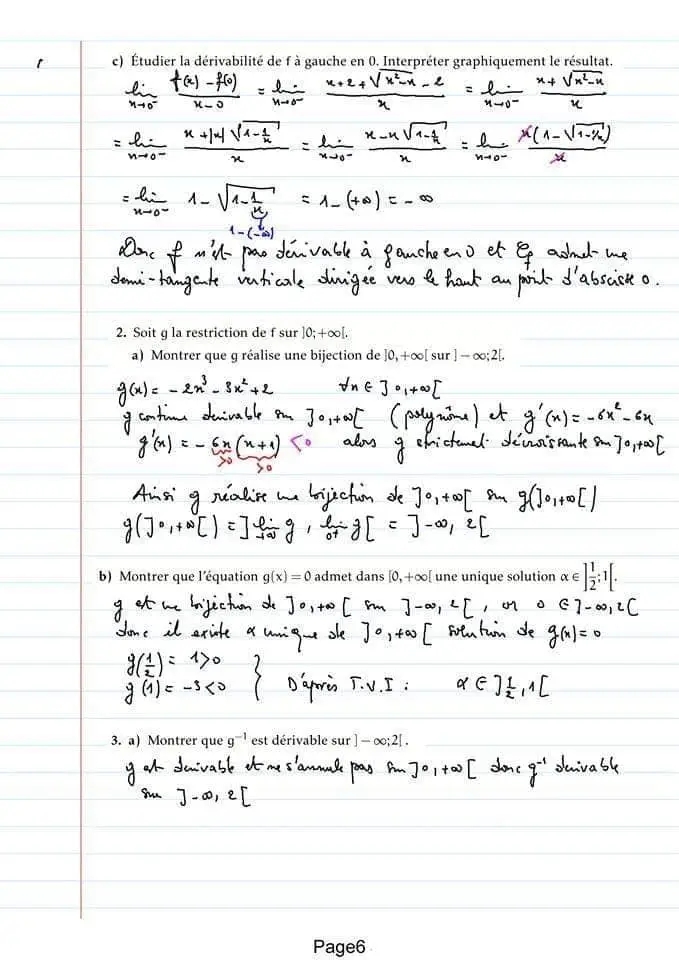 c) Étudier la dérivabilité de f à gauche en 0. Interpréter graphiquement le résultat.
lim x→0⁻ (f(x) - f(0))/(x-0) = lim x→0⁻ (x+2+√(x²-x) - 2)/x = lim x→0⁻ (x+√(x²-x))/x
= lim x→0⁻ (x+|x|√(1-1/x))/x = lim x→0⁻ (x-x√(1-1/x))/x = lim x→0⁻ x(1-√(1-1/x))/x
= lim x→0⁻ 1-√(1-1/x) = 1-(+∞) = -∞
1-(-∞)
Donc f n'est pas dérivable à gauche en 0 et Cf admet une
demi-tangente verticale dirigée vers le haut au point d'abscisse 0.
2. Soit g la restriction de f sur ]0;+∞[.
a) Montrer que g réalise une bijection de ]0,+∞[ sur ]-∞;2[.
g(x) = -2x³ - 3x² + 2 ∀x ∈ ]0,+∞[
g continue dérivable sur ]0,+∞[ (polynôme) et g'(x) = -6x² - 6x
g'(x) = -6x(x+1) <0 alors g strictement décroissante sur ]0,+∞[
>0 >0
Ainsi g réalise une bijection de ]0,+∞[ sur g(]0,+∞[)
g(]0,+∞[) = ]lim +∞ g, lim 0⁺ g[ = ]-∞, 2[
b) Montrer que l'équation g(x) = 0 admet dans [0,+∞[ une unique solution α ∈ ]1/2;1[.
g est une bijection de ]0,+∞[ sur ]-∞, 2[, or 0 ∈ ]-∞, 2[
donc il existe α unique de ]0,+∞[ solution de g(x)=0
g(1/2) = 1>0
g(1) = -3<0 } D'après T.V.I : α ∈ ]1/2, 1[
3. a) Montrer que g⁻¹ est dérivable sur ]-∞;2[.
g est dérivable et ne s'annule pas sur ]0,+∞[ donc g⁻¹ dérivable
sur ]-∞, 2[
Page6